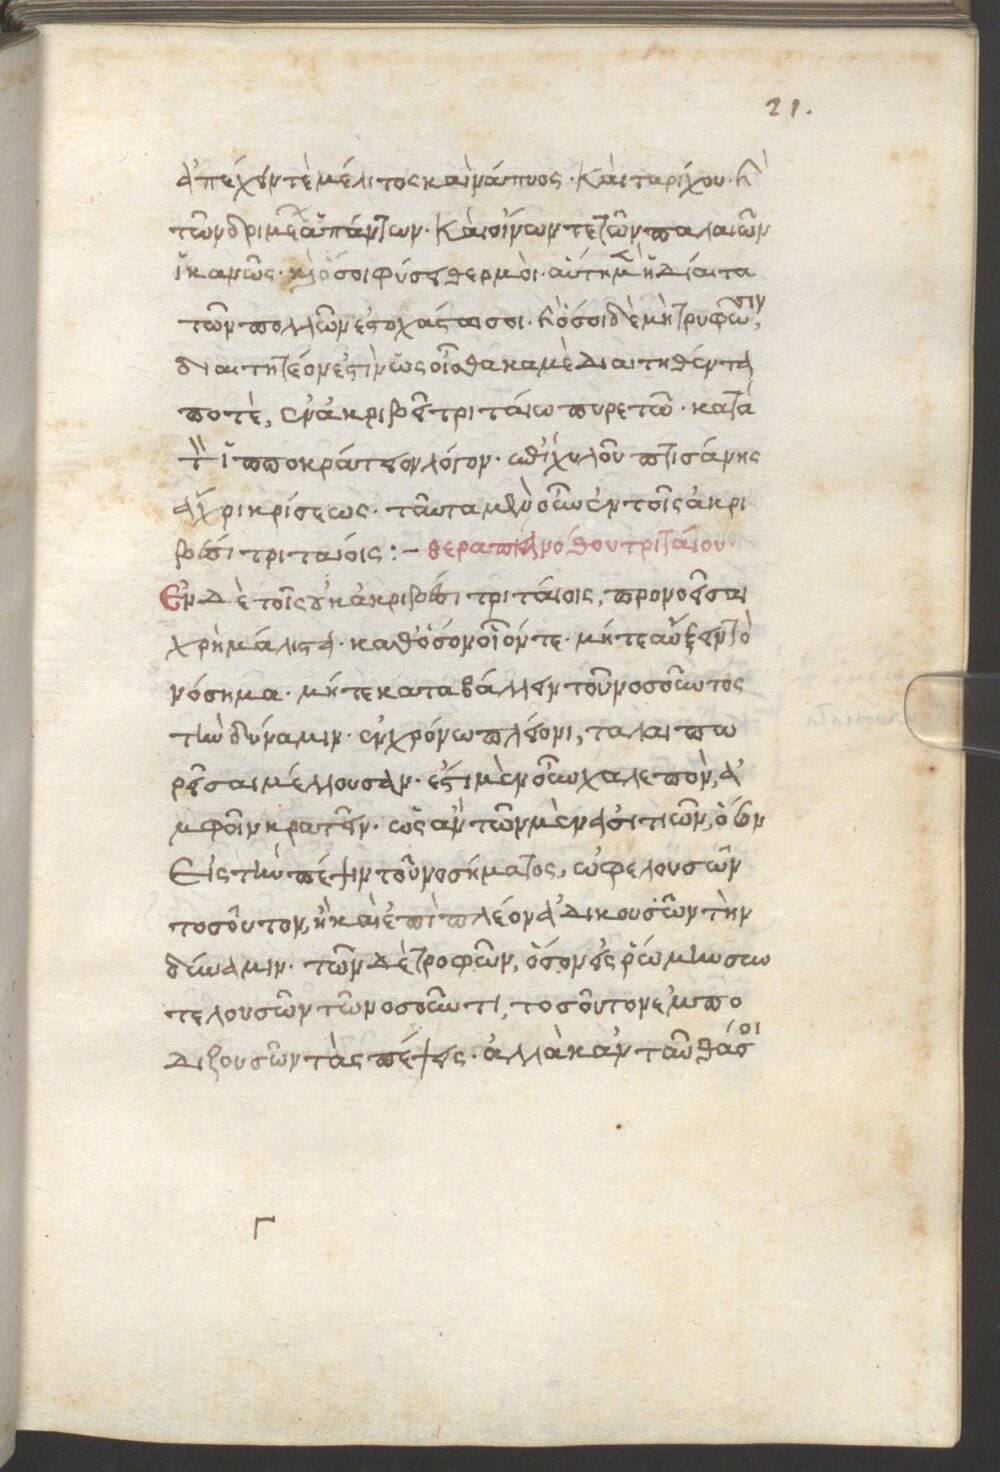 21.
ἀπέχειν τὲ μέλιτος καὶ νάπυος · καὶ ταρίχου · κ(αὶ)
τῶν δριμέ(ων) ἁπάντων · καὶ οἴνων τε τῶν παλαιῶν
ἱκανῶς · κ(αὶ) ὅσοι φύσει θερμοὶ · αὕτη μ(ὲν) ἡ δίαιτα
τῶν πολλῶν ἐστοχάσται σοι · κ(αὶ) ὅσοι δὲ μὴ τρυφῶσιν,
διαιτητέον ἐστὶν ὡς οἶσθα καμὲ διαιτηθέντα
ποτὲ, ἐν ἀκριβεῖ τριταίω πυρετῶ · κατὰ
τ(ὸν) ἱπποκράτειον λόγον · ἐπὶ χυλοῦ πτισάνης
ἄχρι κρίσεως · ταῦτα μὲν οὖν ἐν τοῖς ἀκρι
βέσι τριταίοις : – θεραπεία νόθου τριταίου
Ἐν δὲ τοῖς οὐκ ἀκριβέσι τριταίοις, προνοεῖσθαι
χρὴ μάλιστα · καθόσον οἷόν τε · μήτε αὔξειν τὸ
νόσημα · μήτε καταβάλλειν τοῦ νοσοῦντος
τὴν δύναμιν · ἐν χρόνω πλείονι, ταλαιπω
ρεῖσθαι μέλλουσαν · ἐστὶ μὲν οὖν χαλεπὸν, ἀ
μφοῖν κρατεῖν · ὡς ἂν τῶν μὲν ἀσιτιῶν, ὅσον
Εἰς τὴν πέψιν τοῦ νοσήματος, ὠφελουσῶν
τοσοῦτον, ἢ καὶ ἐπὶ πλέον ἀδικουσῶν τὴν
δύναμιν · τῶν δὲ τροφῶν, ὅσον εἰς ῥώμην συν
τελουσῶν τῶ νοσοῦντι, τοσοῦτον ἐμπο
διζουσῶν τὰς πέψεις · ἀλλὰ κἀν ταῦθά σοι
Γ